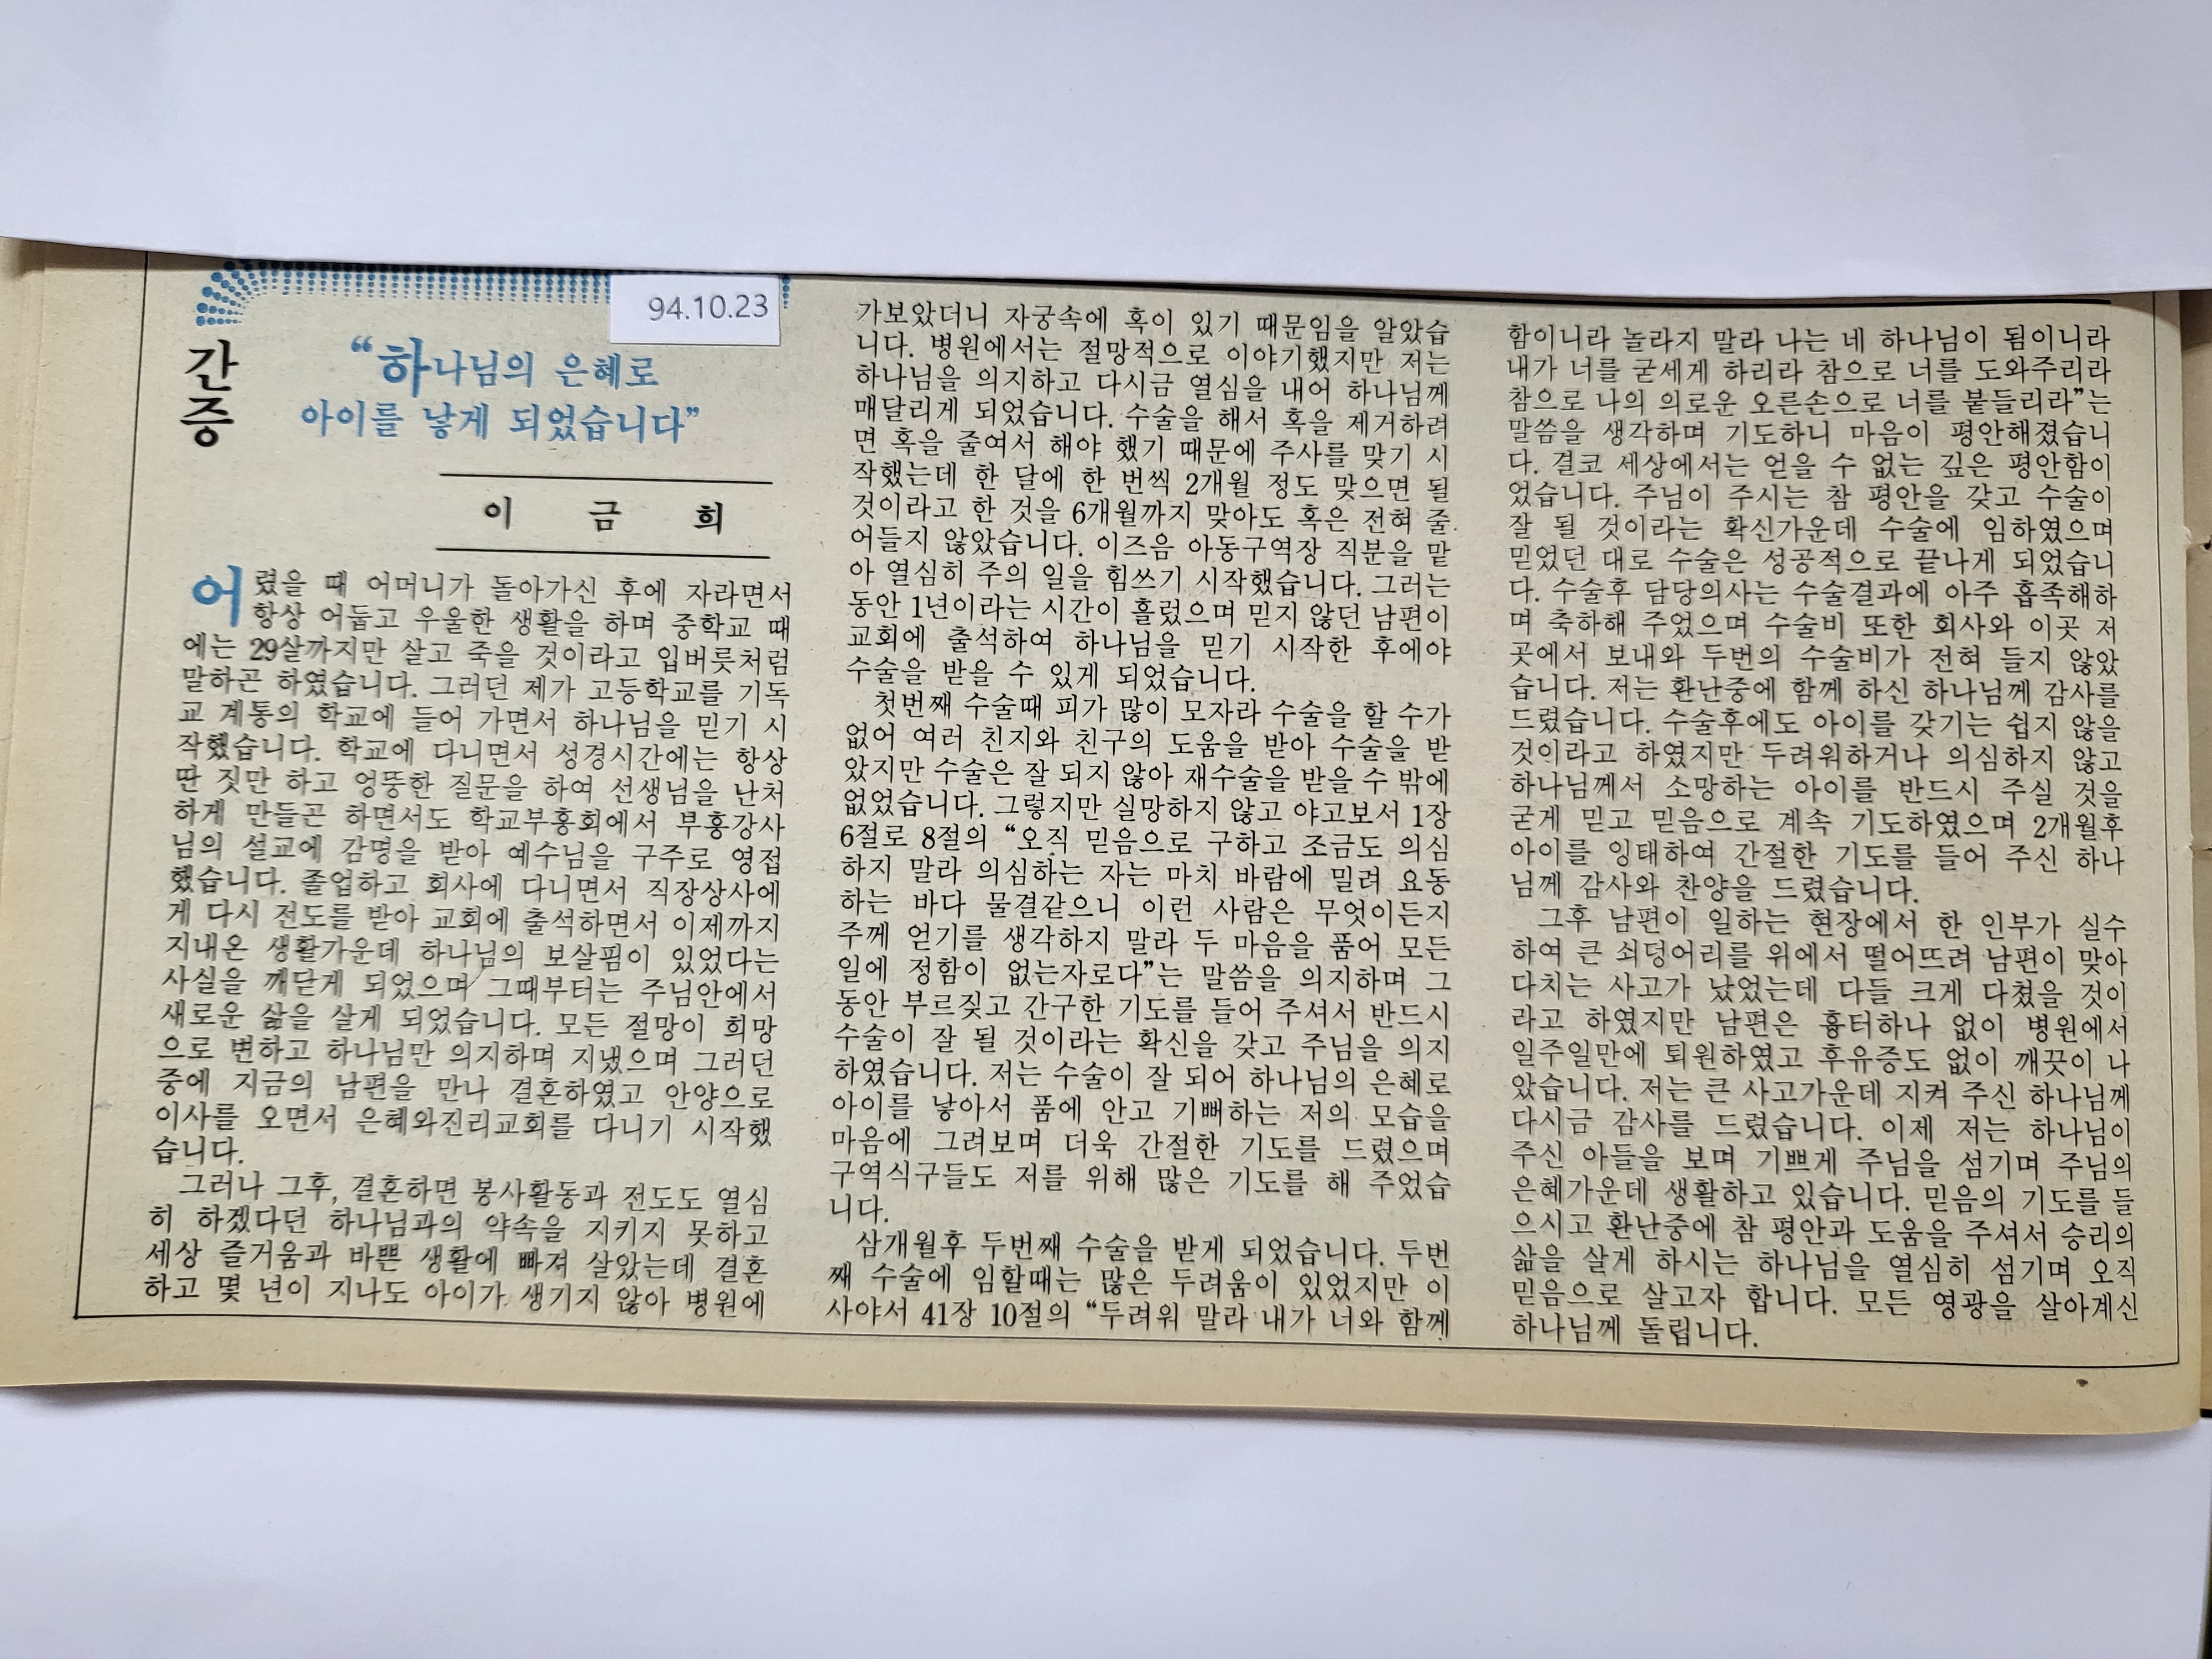 94.10.23
간증
“하나님의 은혜로
아이를 낳게 되었습니다”
이 금 희
어렸을 때 어머니가 돌아가신 후에 자라면서
항상 어둡고 우울한 생활을 하며 중학교 때
에는 29살까지만 살고 죽을 것이라고 입버릇처럼
말하곤 하였습니다. 그러던 제가 고등학교를 기독
교 계통의 학교에 들어 가면서 하나님을 믿기 시
작했습니다. 학교에 다니면서 성경시간에는 항상
딴 짓만 하고 엉뚱한 질문을 하여 선생님을 난처
하게 만들곤 하면서도 학교부흥회에서 부흥강사
님의 설교에 감명을 받아 예수님을 구주로 영접
했습니다. 졸업하고 회사에 다니면서 직장상사에
게 다시 전도를 받아 교회에 출석하면서 이제까지
지내온 생활가운데 하나님의 보살핌이 있었다는
사실을 깨닫게 되었으며 그때부터는 주님안에서
새로운 삶을 살게 되었습니다. 모든 절망이 희망
으로 변하고 하나님만 의지하며 지냈으며 그러던
중에 지금의 남편을 만나 결혼하였고 안양으로
이사를 오면서 은혜와진리교회를 다니기 시작했
습니다.
그러나 그후, 결혼하면 봉사활동과 전도도 열심
히 하겠다던 하나님과의 약속을 지키지 못하고
세상 즐거움과 바쁜 생활에 빠져 살았는데 결혼
하고 몇 년이 지나도 아이가 생기지 않아 병원에
가보았더니 자궁속에 혹이 있기 때문임을 알았습
니다. 병원에서는 절망적으로 이야기했지만 저는
하나님을 의지하고 다시금 열심을 내어 하나님께
매달리게 되었습니다. 수술을 해서 혹을 제거하려
면 혹을 줄여서 해야 했기 때문에 주사를 맞기 시
작했는데 한 달에 한 번씩 2개월 정도 맞으면 될
것이라고 한 것을 6개월까지 맞아도 혹은 전혀 줄
어들지 않았습니다. 이즈음 아동구역장 직분을 맡
아 열심히 주의 일을 힘쓰기 시작했습니다. 그러는
동안 1년이라는 시간이 흘렀으며 믿지 않던 남편이
교회에 출석하여 하나님을 믿기 시작한 후에야
수술을 받을 수 있게 되었습니다.
첫번째 수술때 피가 많이 모자라 수술을 할 수가
없어 여러 친지와 친구의 도움을 받아 수술을 받
았지만 수술은 잘 되지 않아 재수술을 받을 수 밖에
없었습니다. 그렇지만 실망하지 않고 야고보서 1장
6절로 8절의 “오직 믿음으로 구하고 조금도 의심
하지 말라 의심하는 자는 마치 바람에 밀려 요동
하는 바다 물결같으니 이런 사람은 무엇이든지
주께 얻기를 생각하지 말라 두 마음을 품어 모든
일에 정함이 없는자로다”는 말씀을 의지하며 그
동안 부르짖고 간구한 기도를 들어 주셔서 반드시
수술이 잘 될 것이라는 확신을 갖고 주님을 의지
하였습니다. 저는 수술이 잘 되어 하나님의 은혜로
아이를 낳아서 품에 안고 기뻐하는 저의 모습을
마음에 그려보며 더욱 간절한 기도를 드렸으며
구역식구들도 저를 위해 많은 기도를 해 주었습
니다.
삼개월후 두번째 수술을 받게 되었습니다. 두번
째 수술에 임할때는 많은 두려움이 있었지만 이
사야서 41장 10절의 “두려워 말라 내가 너와 함께
함이니라 놀라지 말라 나는 네 하나님이 됨이니라
내가 너를 굳세게 하리라 참으로 너를 도와주리라
참으로 나의 의로운 오른손으로 너를 붙들리라”는
말씀을 생각하며 기도하니 마음이 평안해졌습니
다. 결코 세상에서는 얻을 수 없는 깊은 평안함이
었습니다. 주님이 주시는 참 평안을 갖고 수술이
잘 될 것이라는 확신가운데 수술에 임하였으며
믿었던 대로 수술은 성공적으로 끝나게 되었습니
다. 수술후 담당의사는 수술결과에 아주 흡족해하
며 축하해 주었으며 수술비 또한 회사와 이곳 저
곳에서 보내와 두번의 수술비가 전혀 들지 않았
습니다. 저는 환난중에 함께 하신 하나님께 감사를
드렸습니다. 수술후에도 아이를 갖기는 쉽지 않을
것이라고 하였지만 두려워하거나 의심하지 않고
하나님께서 소망하는 아이를 반드시 주실 것을
굳게 믿고 믿음으로 계속 기도하였으며 2개월후
아이를 잉태하여 간절한 기도를 들어 주신 하나
님께 감사와 찬양을 드렸습니다.
그후 남편이 일하는 현장에서 한 인부가 실수
하여 큰 쇠덩어리를 위에서 떨어뜨려 남편이 맞아
다치는 사고가 났었는데 다들 크게 다쳤을 것이
라고 하였지만 남편은 흉터하나 없이 병원에서
일주일만에 퇴원하였고 후유증도 없이 깨끗이 나
았습니다. 저는 큰 사고가운데 지켜 주신 하나님께
다시금 감사를 드렸습니다. 이제 저는 하나님이
주신 아들을 보며 기쁘게 주님을 섬기며 주님의
은혜가운데 생활하고 있습니다. 믿음의 기도를 들
으시고 환난중에 참 평안과 도움을 주셔서 승리의
삶을 살게 하시는 하나님을 열심히 섬기며 오직
믿음으로 살고자 합니다. 모든 영광을 살아계신
하나님께 돌립니다.